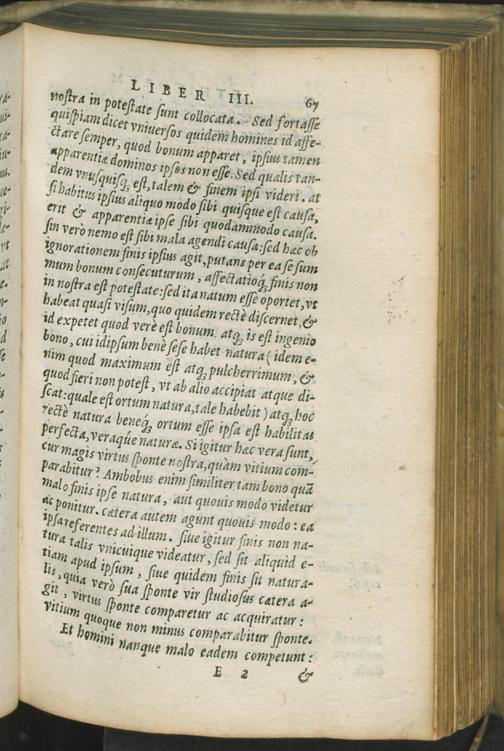 LIBER III. 67
nostra in potestate sunt collocata. Sed fortasse
quispiam dicet vniuersos quidem homines id affe-
ctare semper, quod bonum apparet, ipsius tamen
apparentiæ dominos ipsos non esse. Sed qualis tan-
dem vnusquisq; est, talem & finem ipsi videri. at
si habitus ipsius aliquo modo sibi quisque est causa,
erit & apparentiæ ipse sibi quodammodo causa.
sin verò nemo est sibi mala agendi causa: sed hæc ob
ignorationem finis ipsius agit, putans per ea se sum
mum bonum consecuturum, affectatioq́; finis non
in nostra est potestate: sed ita natum esse oportet, vt
habeat quasi visum, quo quidem rectè discernet, &
id expetet quod verè est bonum. atq; is est ingenio
bono, cui id ipsum benè sese habet natura (idem e-
nim quod maximum est atq; pulcherrimum, &
quod fieri non potest, vt ab alio accipiat atque di-
scat: quale est ortum natura, tale habebit) atq; hoc
rectè natura beneq́; ortum esse ipsa est habilitas
perfecta, veraque naturæ. Si igitur hæc vera sunt,
cur magis virtus sponte nostra, quàm vitium com-
parabitur? Ambobus enim similiter tam bono quā
malo finis ipse natura, aut quouis modo videtur
ac ponitur. cætera autem agunt quouis modo: ea
ipsa referentes ad illum. siue igitur finis non na-
tura talis vnicuique videatur, sed sit aliquid e-
tiam apud ipsum, siue quidem finis sit natura-
lis, quia verò sua sponte vir studiosus cætera a-
git, virtus sponte comparetur ac acquiratur:
vitium quoque non minus comparabitur sponte.
Et homini nanque malo eadem competunt:
E 2 &